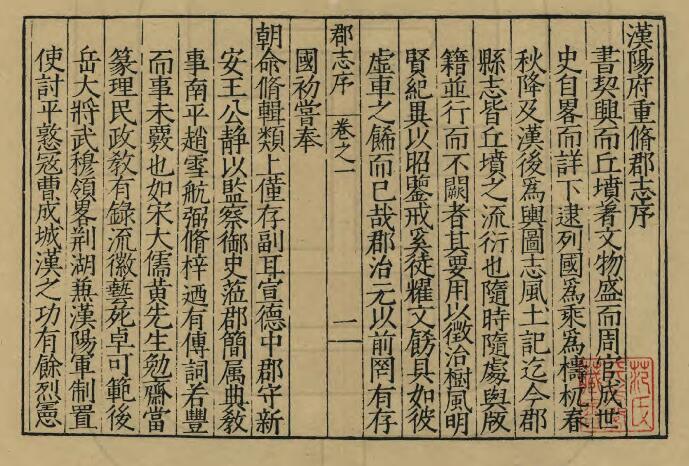 漢陽府重脩郡志序
書契興而丘墳着文物盛而周官成世
史自畧而詳下逮列國為乘為檮杌春
秋降及漢後為輿圖志風土記迄今郡
縣志皆丘墳之流衍也隨時隨處與版
籍並行而不闕者其要用以徵治樹風明
賢紀異以昭鑒戒奚徒耀文餙具如彼
虛車之餙而已哉郡治元以前罔有存
郡志序 卷之一 一
國初嘗奉
朝命脩輯類上僅存副耳宣德中郡守新
安王公静以監察御史蒞郡簡属典教
事南平趙雪航弼脩梓廼有傳詞若豐
而事未覈也如宋大儒黃先生勉齋當
篆理民政教有錄流徽藝苑卓可範後
岳大將武穆領畧荆湖兼漢陽軍制置
使討平憝寇曹成城漢之功有餘烈憲